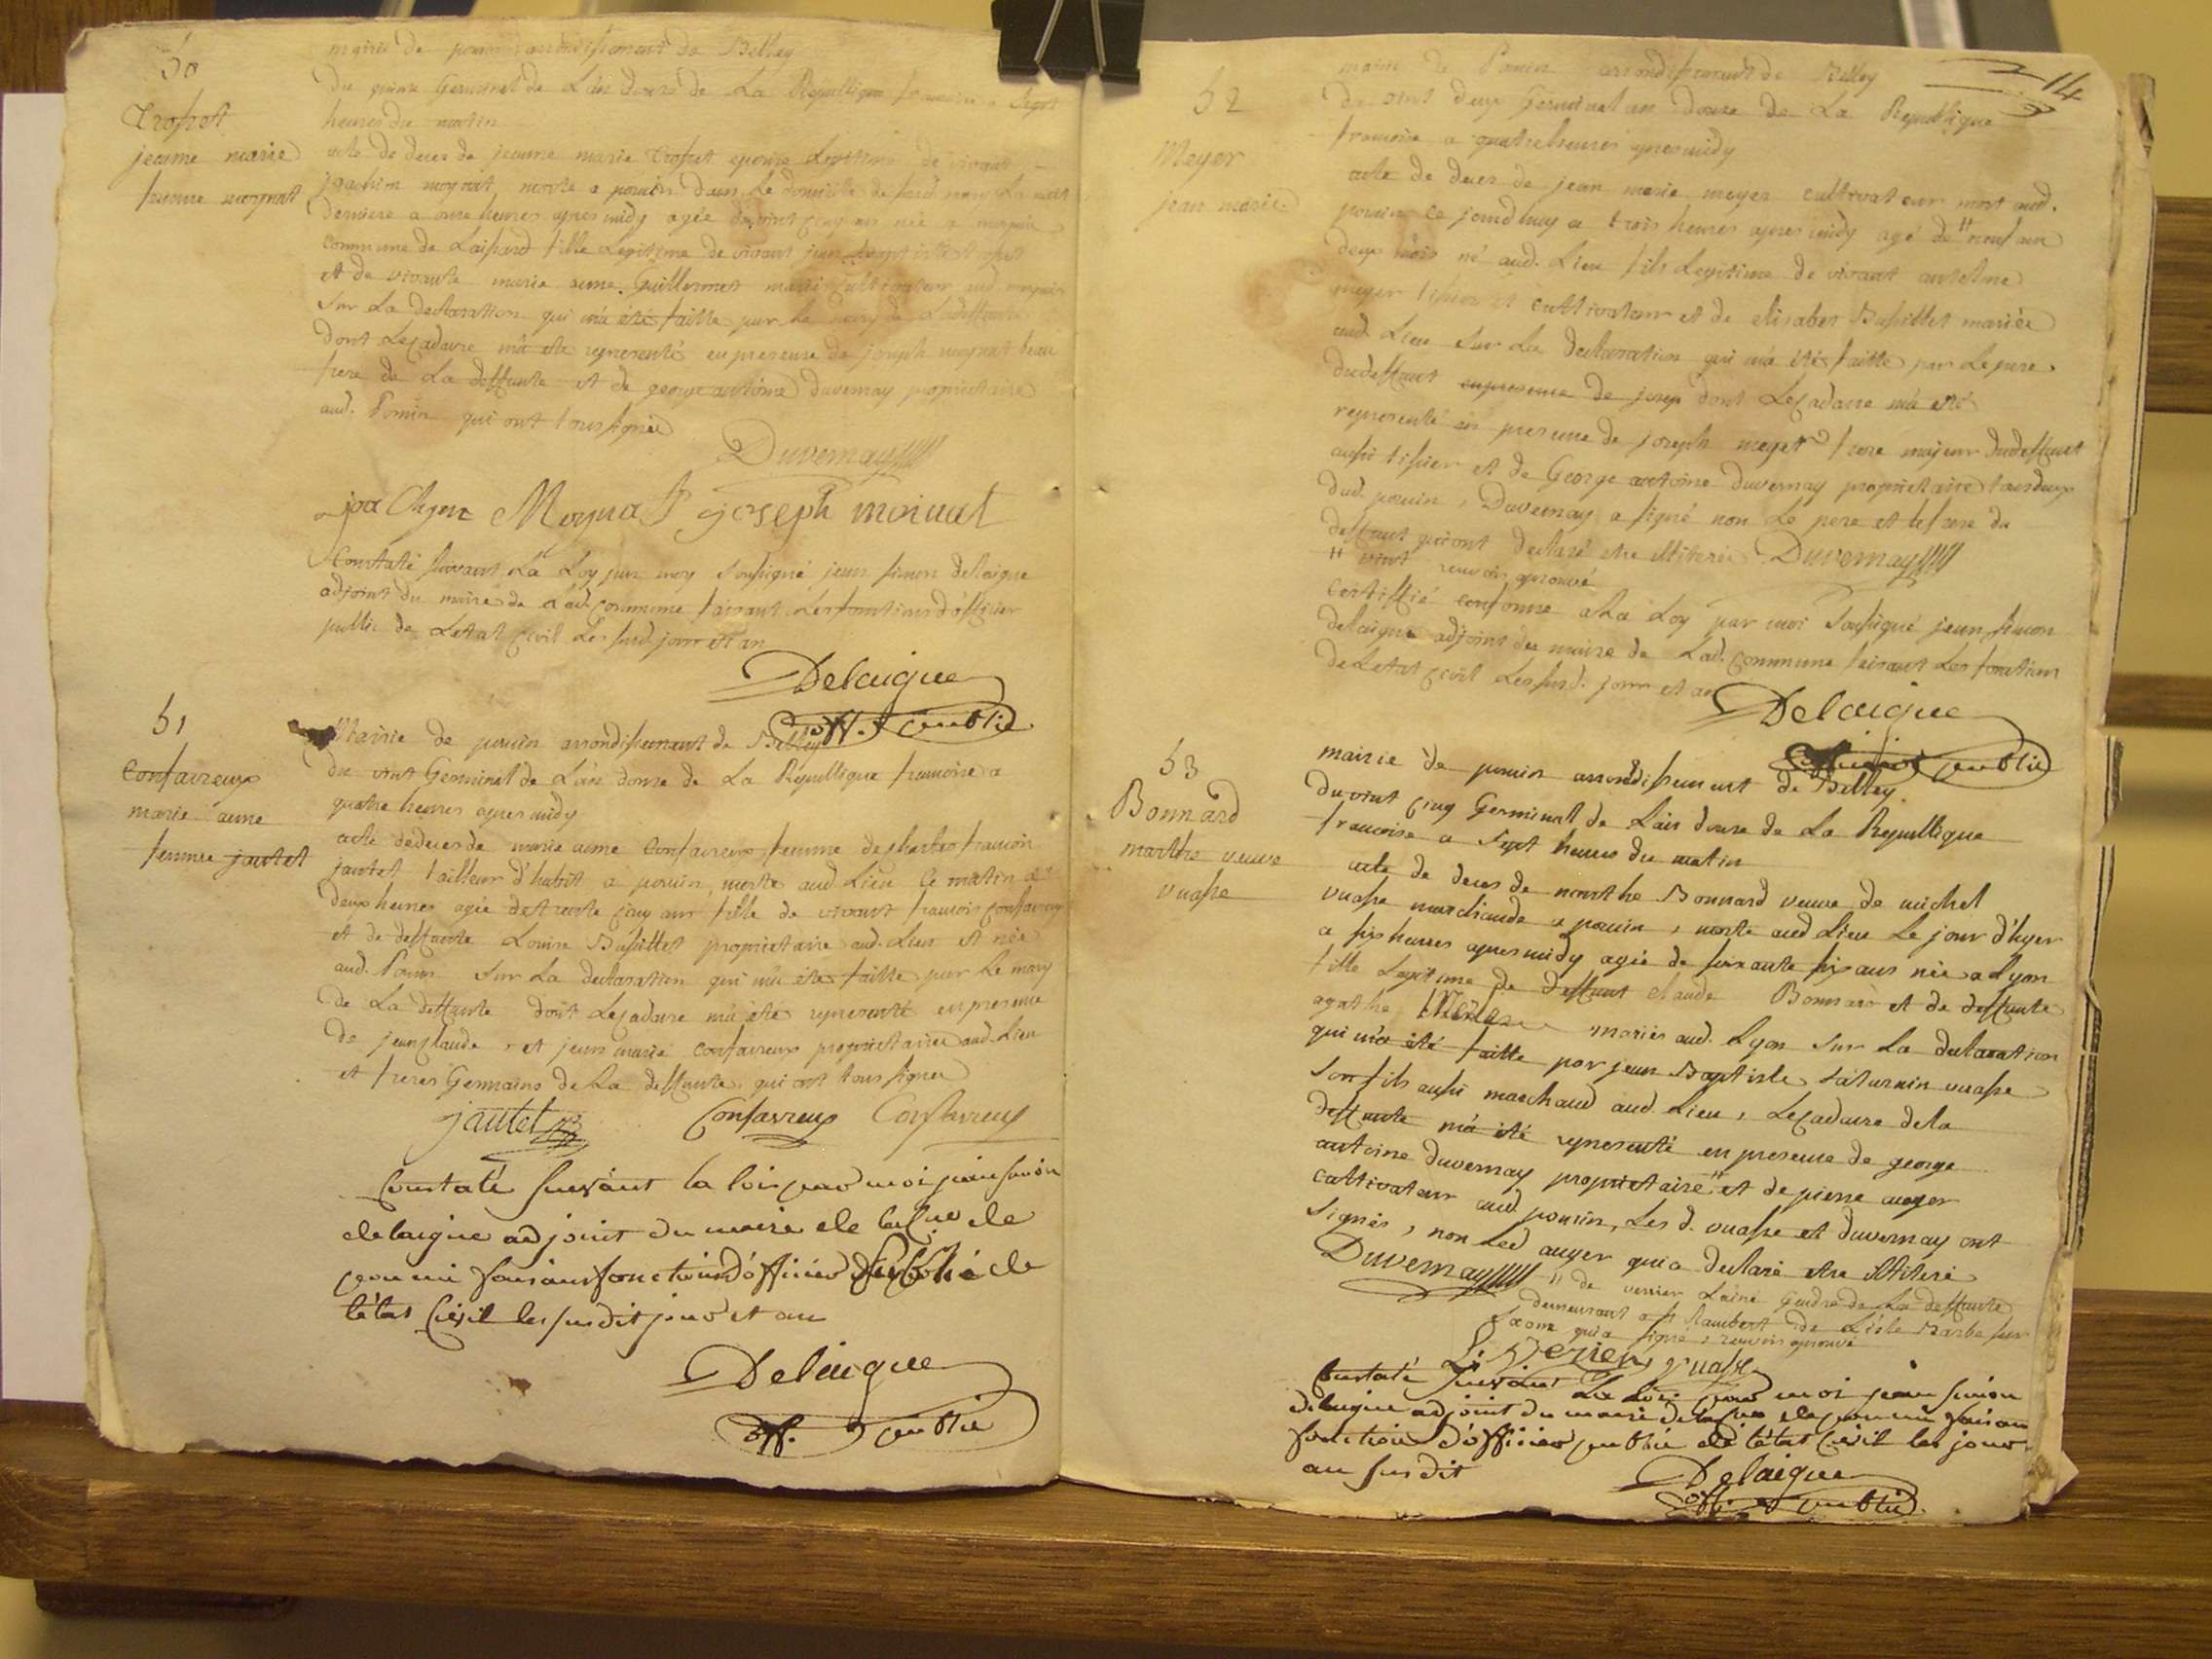 50
trofset
jeanne marie
femme moynat
mairie de pouin arrondissement de Belley
Du quinze Germinal de L'an douze de La Republique francoise a sept
heures du matin
acte de deces de jeanne marie trofset epouse Legitime de vivant
joachim moynat, morte a pouin dans Le domicile de son mary La nuit
derniere a onze heures apres midy agée de vint cinq ans née a
commune de fille Legitime de vivant jean
et de vivante marie anne Guillermet mariés cultivateur aud.
sur La declaration qui m'a été faitte par Le mary de La deffunte
dont Le cadavre m'a été representé en presence de joseph moynat beau
frere de La deffunte et de george antoine duvernay proprietaire
aud. Pouin qui ont tous signés
Duvernay
joa Chym Moynat joseph moinat
Constaté suivant La Loy par moy soussigné jean simon delaigue
adjoint du maire de Lad. commune faisant Les fonctions d'officier
public de L'etat civil Les susd. jour et an
Delaigue
off. public
51
Confavreux
marie anne
femme jantet
Mairie de pouin arrondissement de Belley
du vint Germinal de L'an douze de La Republique francoise a
quatre heures apres midy
acte de deces de marie anne Confavreux femme de charles francois
jantet tailleur d'habit a pouin, morte aud. Lieu Ce matin a
deux heures agée de trente cinq ans fille de vivant francois confavreux
et de deffunte Louise Bussillet proprietaire aud. Lieu et née
aud. Pouin sur La declaration qui m'a été faitte par Le mary
de La deffunte dont Le cadavre m'a été representé en presence
de jean claude et jean marie confavreux proprietaires aud. Lieu
et freres Germains de La deffunte qui ont tous signés
jantet Confavreux Confavreux
Constaté suivant la loi par moi jean simon
delaigue adjoint du maire de la cne de
pouin faisant fonctions d'officier public de
l'état civil les susdit jour et an
Delaigue
off. public
14
52
Meyer
jean marie
mairie de Pouin arrondissement de Belley
du vint deux Germinal an douze de La Republique
francoise a quatre heures apres midy
acte de deces de jean marie meyer cultivateur mort aud.
pouin ce jourd'huy a trois heures apres midy agé de " neuf ans
deux mois né aud. Lieu fils Legitime de vivant antelme
meyer tissier et cultivateur et de elisabet Bussillet mariés
aud. Lieu sur La declaration qui m'a été faitte par Le pere
du deffunt en presence de josep dont Le cadavre m'a été
representé en presence de joseph meyer frere majeur du deffunt
aussi tissier et de George antoine duvernay proprietaire tous deux
dud. pouin, Duvernay a signé non Le pere et le frere du
deffunt qui ont declaré etre illiteré Duvernay
" vint renvoi aprouvé
Certiffié conforme a La Loy par moi soussigné jean simon
delaigue adjoint du maire de Lad. commune faisant Les fonction
de L'etat civil Les susd. jour et an
Delaigue
public
53
Bonnard
marthe veuve
vuasse
mairie de pouin arrondissement de Belley
du vint cinq Germinal de L'an douze de La Republique
francoise a sept heures du matin
acte de deces de marthe Bonnard veuve de michel
vuasse marchande a pouin, morte aud. Lieu Le jour d'hyer
a six heures apres midy agée de soixante six ans née a Lyon
fille Legitime de deffunt claude Bonnard et de deffunte
agathe mariés aud. Lyon sur La declaration
qui m'a été faitte par jean Baptiste saturnin vuasse
son fils aussi marchand aud. Lieu, Le cadavre de la
deffunte m'a été representé en presence de george
antoine duvernay proprietaire " et de pierre auger
cultivateur aud. pouin, Les d. vuasse et duvernay ont
signés, non Led. auger qui a declaré etre illiteré
Duvernay " de verrier L'ainé Gendre de La deffunte
demeurant a st Rambert de L'isle Barbe sur
saone qui a signé, renvoi aprouvé
vuasse
Constaté suivant la loi par moi jean simon
delaigue adjoint du maire de la cne de pouin faisan
fonction d'officier public de l'état civil les jour
an susdit
Delaigue
off. public